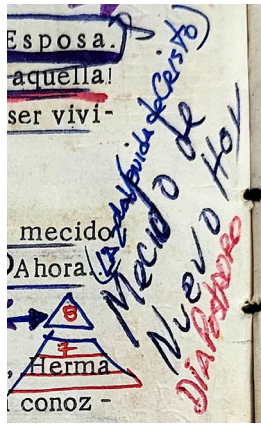 Esposa.
aquella!
ser vivi-
mecido
Ahora...
8
7
, Herma
conoz -
(La 2da Venida de Cristo)
Mecido de
Nuevo Hoy
Día Postrero